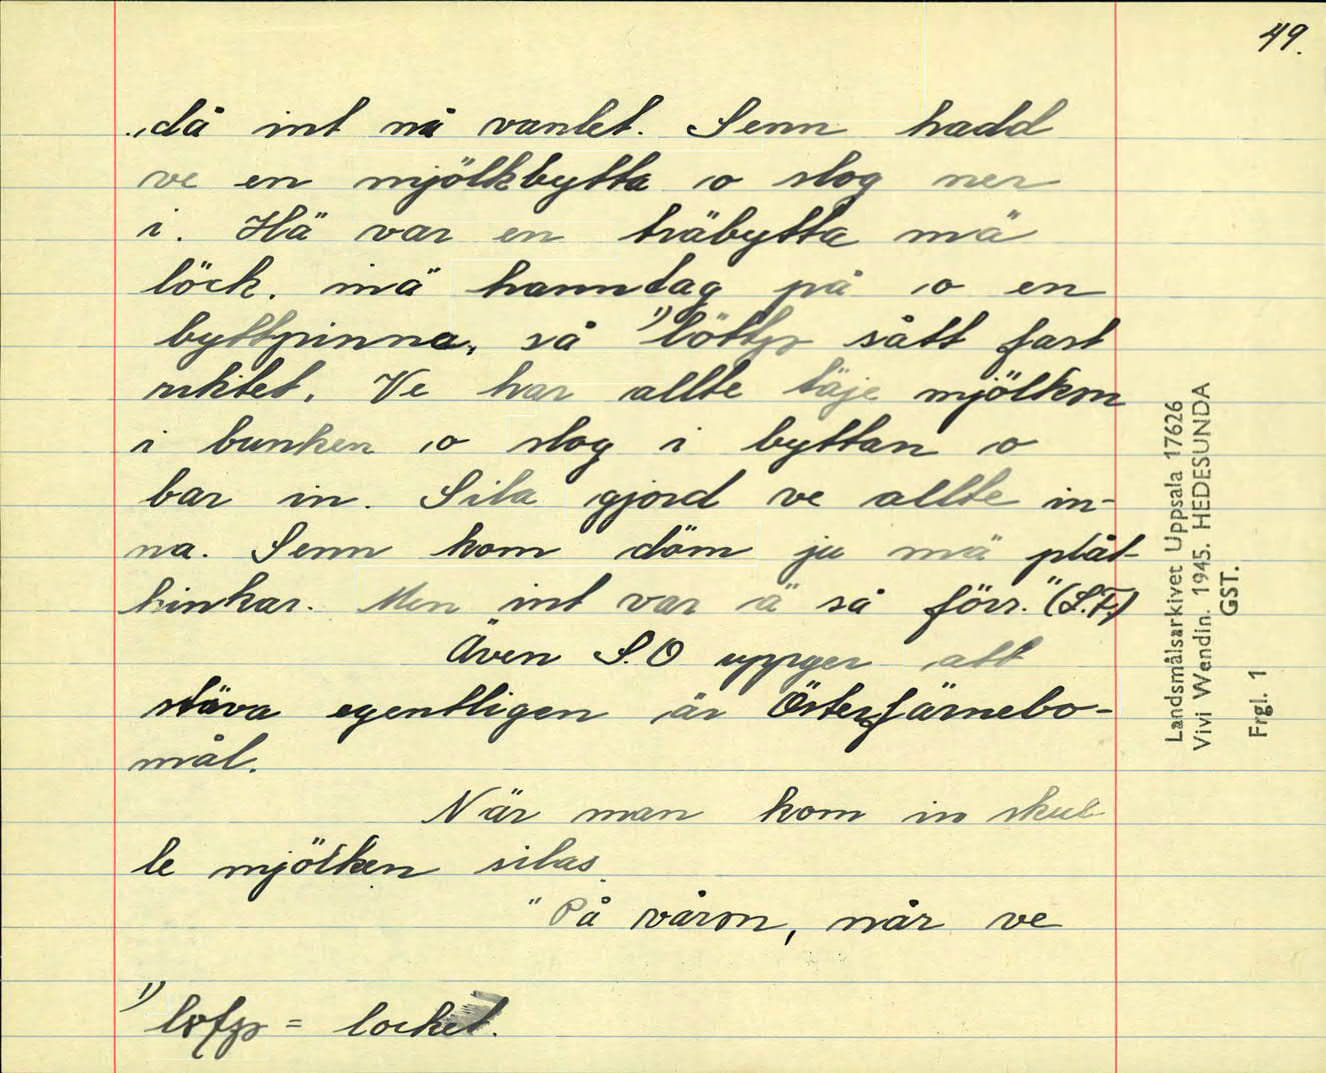 49.
då int nå vanlet. Senn hadd
ve en mjölkbytta o slog ner
i. Hä var en träbytta mä
löck. mä hanntag på o en
byttpinna, så ¹⁾löttjo sått fast
riktet. Ve har allte täje mjölken
i bunken o slog i byttan o
bar in. Sila gjord ve allte in-
na. Senn kom döm ju mä plåt-
hinkar. Men int var ä så förr." (S.F.)
Även S.O uppger att
stäva egentligen är Österfärnebo-
mål.
När man kom in skul-
le mjölken silas.
"På våren, når ve
¹⁾ = locket.
Landsmålsarkivet Uppsala 17626
Vivi Wendin. 1945. HEDESUNDA
GST.
Frgl. 1